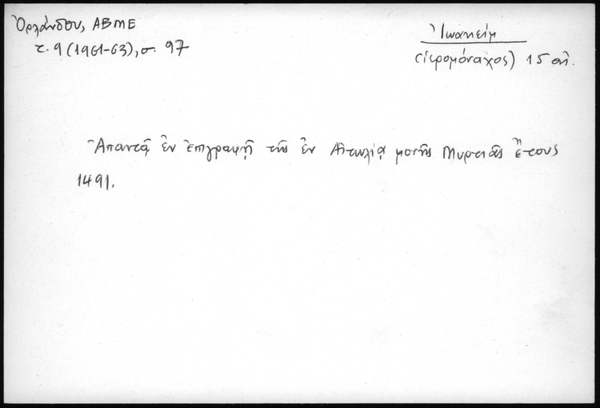 Ὀρλάνδου, ΑΒΜΕ
τ. 9 (1961-63), σ. 97
Ἰωακεὶμ
(ἱερομόναχος) 15 αἰ.
Ἀπαντᾷ ἐν ἐπιγραφῇ τῆς ἐν Αἰτωλίᾳ μονῆς Μυρτιᾶς ἔτους
1491.